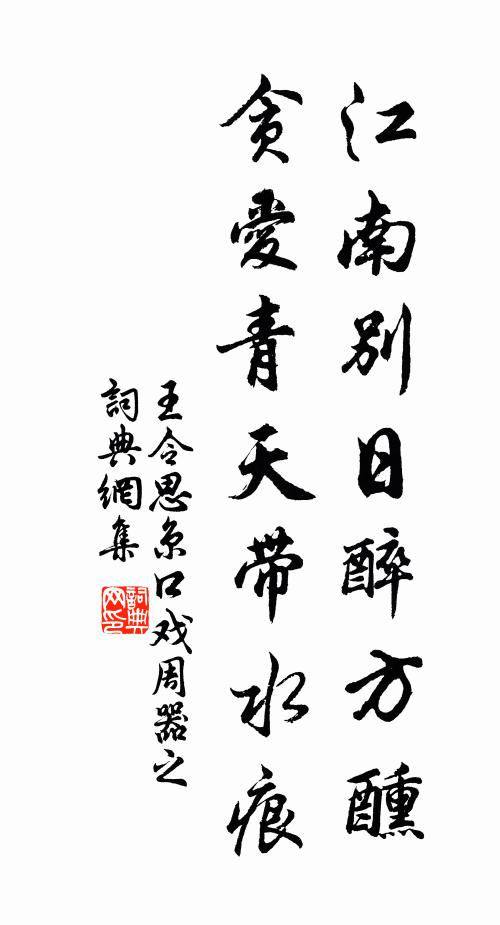 江南別日醉方醺
貪愛青天帶水痕
王令思京口戏周器之
詞典網集
詞典网印